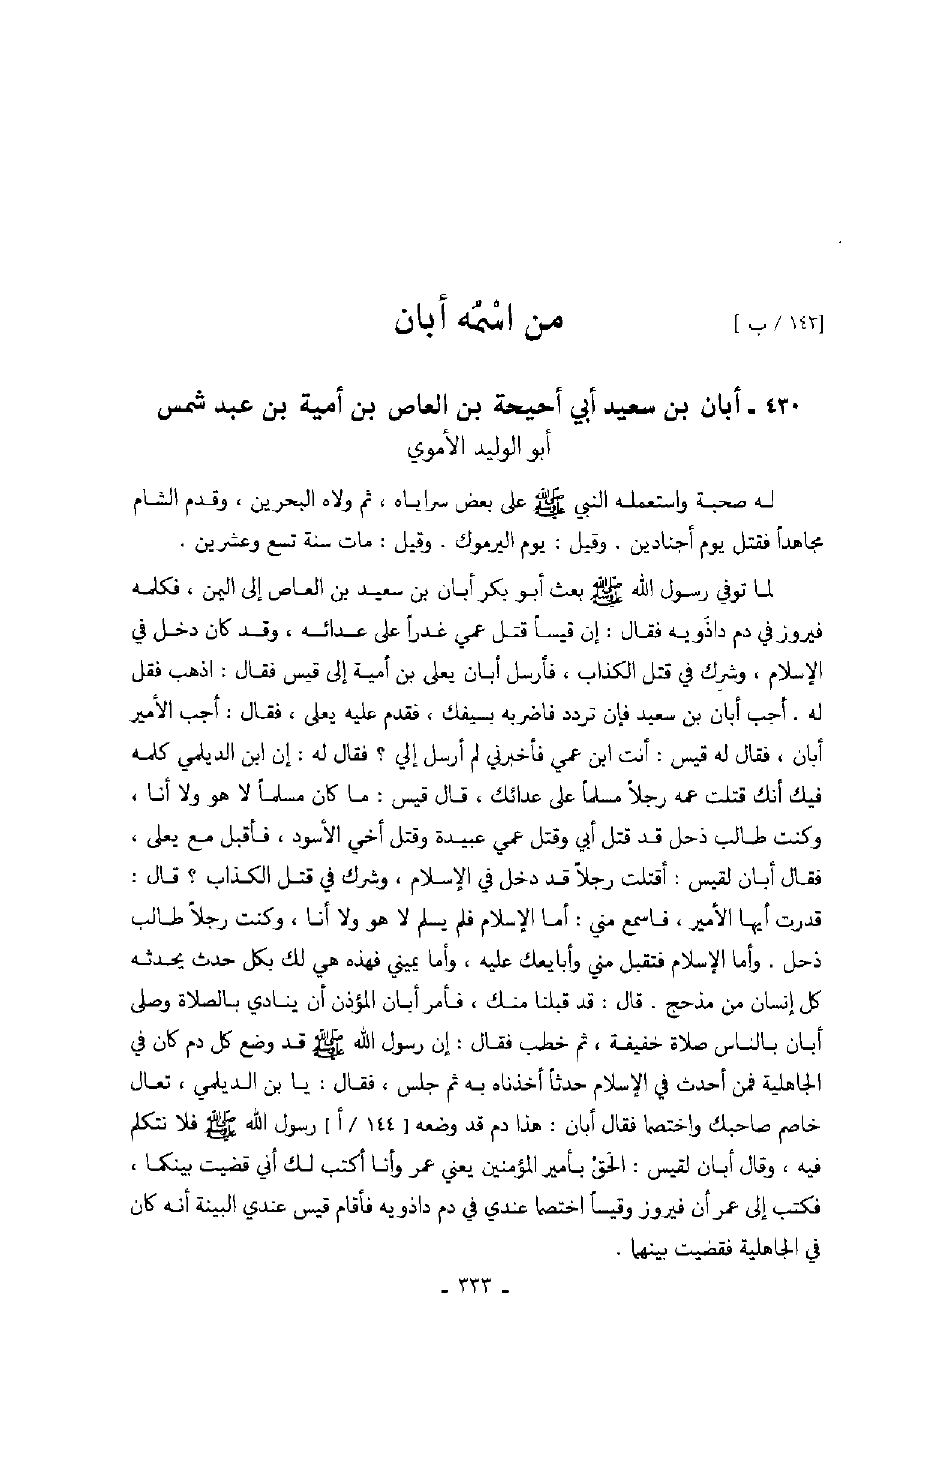 [١٤٣ / ب ] من اسْمُه أبان
٤٣٠ ـ أبان بن سعيد أبي أحيحة بن العاص بن أمية بن عبد شمس
أبو الوليد الأموي
له صحبة واستعمله النبي ﷺ على بعض سراياه ، ثم ولاه البحرين ، وقدم الشام
مجاهداً فقتل يوم أجنادين . وقيل : يوم اليرموك . وقيل : مات سنة تسع وعشرين .
لما توفي رسول الله ﷺ بعث أبو بكر أبان بن سعيد بن العاص إلى اليمن ، فكلمه
فيروز في دم داذَويه فقال : إن قيساً قتل عمي غدراً على عدائه ، وقد كان دخل في
الإسلام ، وشرك في قتل الكذاب ، فأرسل أبان يعلى بن أمية إلى قيس فقال : اذهب فقل
له . أجب أبان بن سعيد فإن تردد فاضربه بسيفك ، فقدم عليه يعلى ، فقال : أجب الأمير
أبان ، فقال له قيس : أنت ابن عمي فأخبرني لم أرسل إلي ؟ فقال له : إن ابن الديلمي كلمه
فيك أنك قتلت عمه رجلاً مسلماً على عدائك ، قال قيس : ما كان مسلماً لا هو ولا أنا ،
وكنت طالب ذحل قد قتل أبي وقتل عمي عبيدة وقتل أخي الأسود ، فأقبل مع يعلى ،
فقال أبان لقيس : أقتلت رجلاً قد دخل في الإسلام ، وشرك في قتل الكذاب ؟ قال :
قدرت أيها الأمير ، فاسمع مني : أما الإسلام فلم يسلم لا هو ولا أنا ، وكنت رجلاً طالب
ذحل . وأما الإسلام فتقبل مني وأبايعك عليه ، وأما يميني فهذه هي لك بكل حدث يحدثه
كل إنسان من مذحج . قال : قد قبلنا منك ، فأمر أبان المؤذن أن ينادي بالصلاة وصلى
أبان بالناس صلاة خفيفة ، ثم خطب فقال : إن رسول الله ﷺ قد وضع كل دم كان في
الجاهلية فمن أحدث في الإسلام حدثاً أخذناه به ثم جلس ، فقال : يا بن الديلمي ، تعال
خاصم صاحبك واختصما فقال أبان : هذا دم قد وضعه [ ١٤٤ / أ ] رسول الله ﷺ فلا نتكلم
فيه ، وقال أبان لقيس : الحَقْ بأمير المؤمنين يعني عمر وأنا أكتب لك أني قضيت بينكما ،
فكتب إلى عمر أن فيروز وقيساً اختصما عندي في دم داذويه فأقام قيس عندي البينة أنه كان
في الجاهلية فقضيت بينهما .
ـ ٣٣٣ ـ